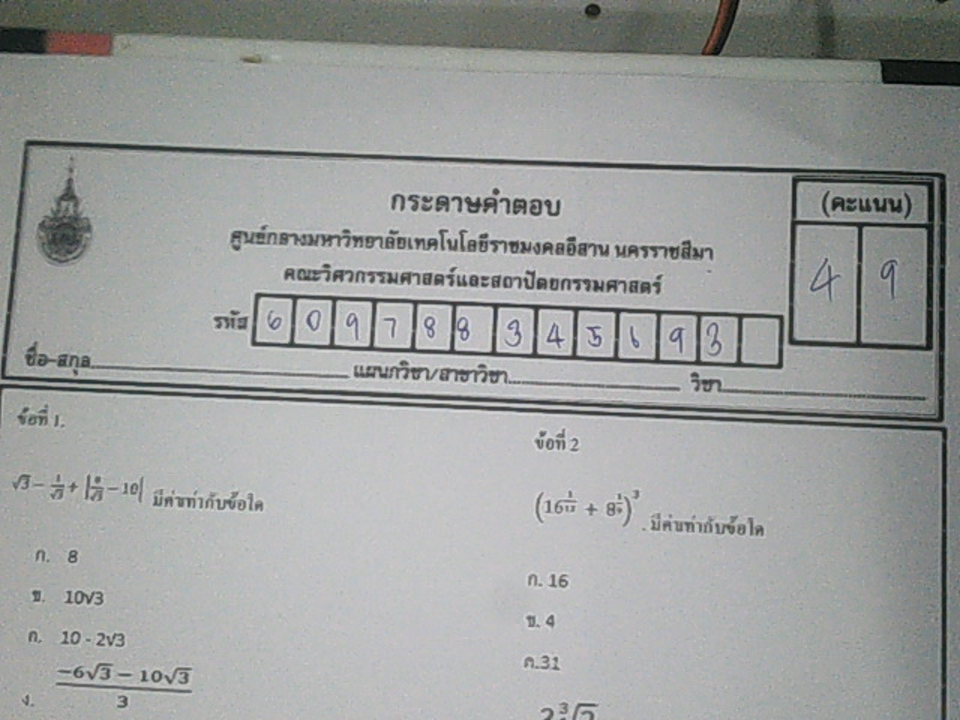 กระดาษคำตอบ
(คะแนน)
ศูนย์กลางมหาวิทยาลัยเทคโนโลยีราชมงคลอีสาน นครราชสีมา
4 9
คณะวิศวกรรมศาสตร์และสถาปัตยกรรมศาสตร์
รหัส 6 0 9 7 8 8 3 4 5 6 9 3
ชื่อ-สกุล แผนกวิชา/สาขาวิชา วิชา
ข้อที่ 1.
√3 − 1/√3 + | /√3 − 10| มีค่าเท่ากับข้อใด
ก. 8
ข. 10√3
ค. 10 - 2√3
ง. (−6√3 − 10√3)/3
ข้อที่ 2
(16^(1/12) + 8^(1/9))^3 . มีค่าเท่ากับข้อใด
ก. 16
ข. 4
ค.31
2∛2